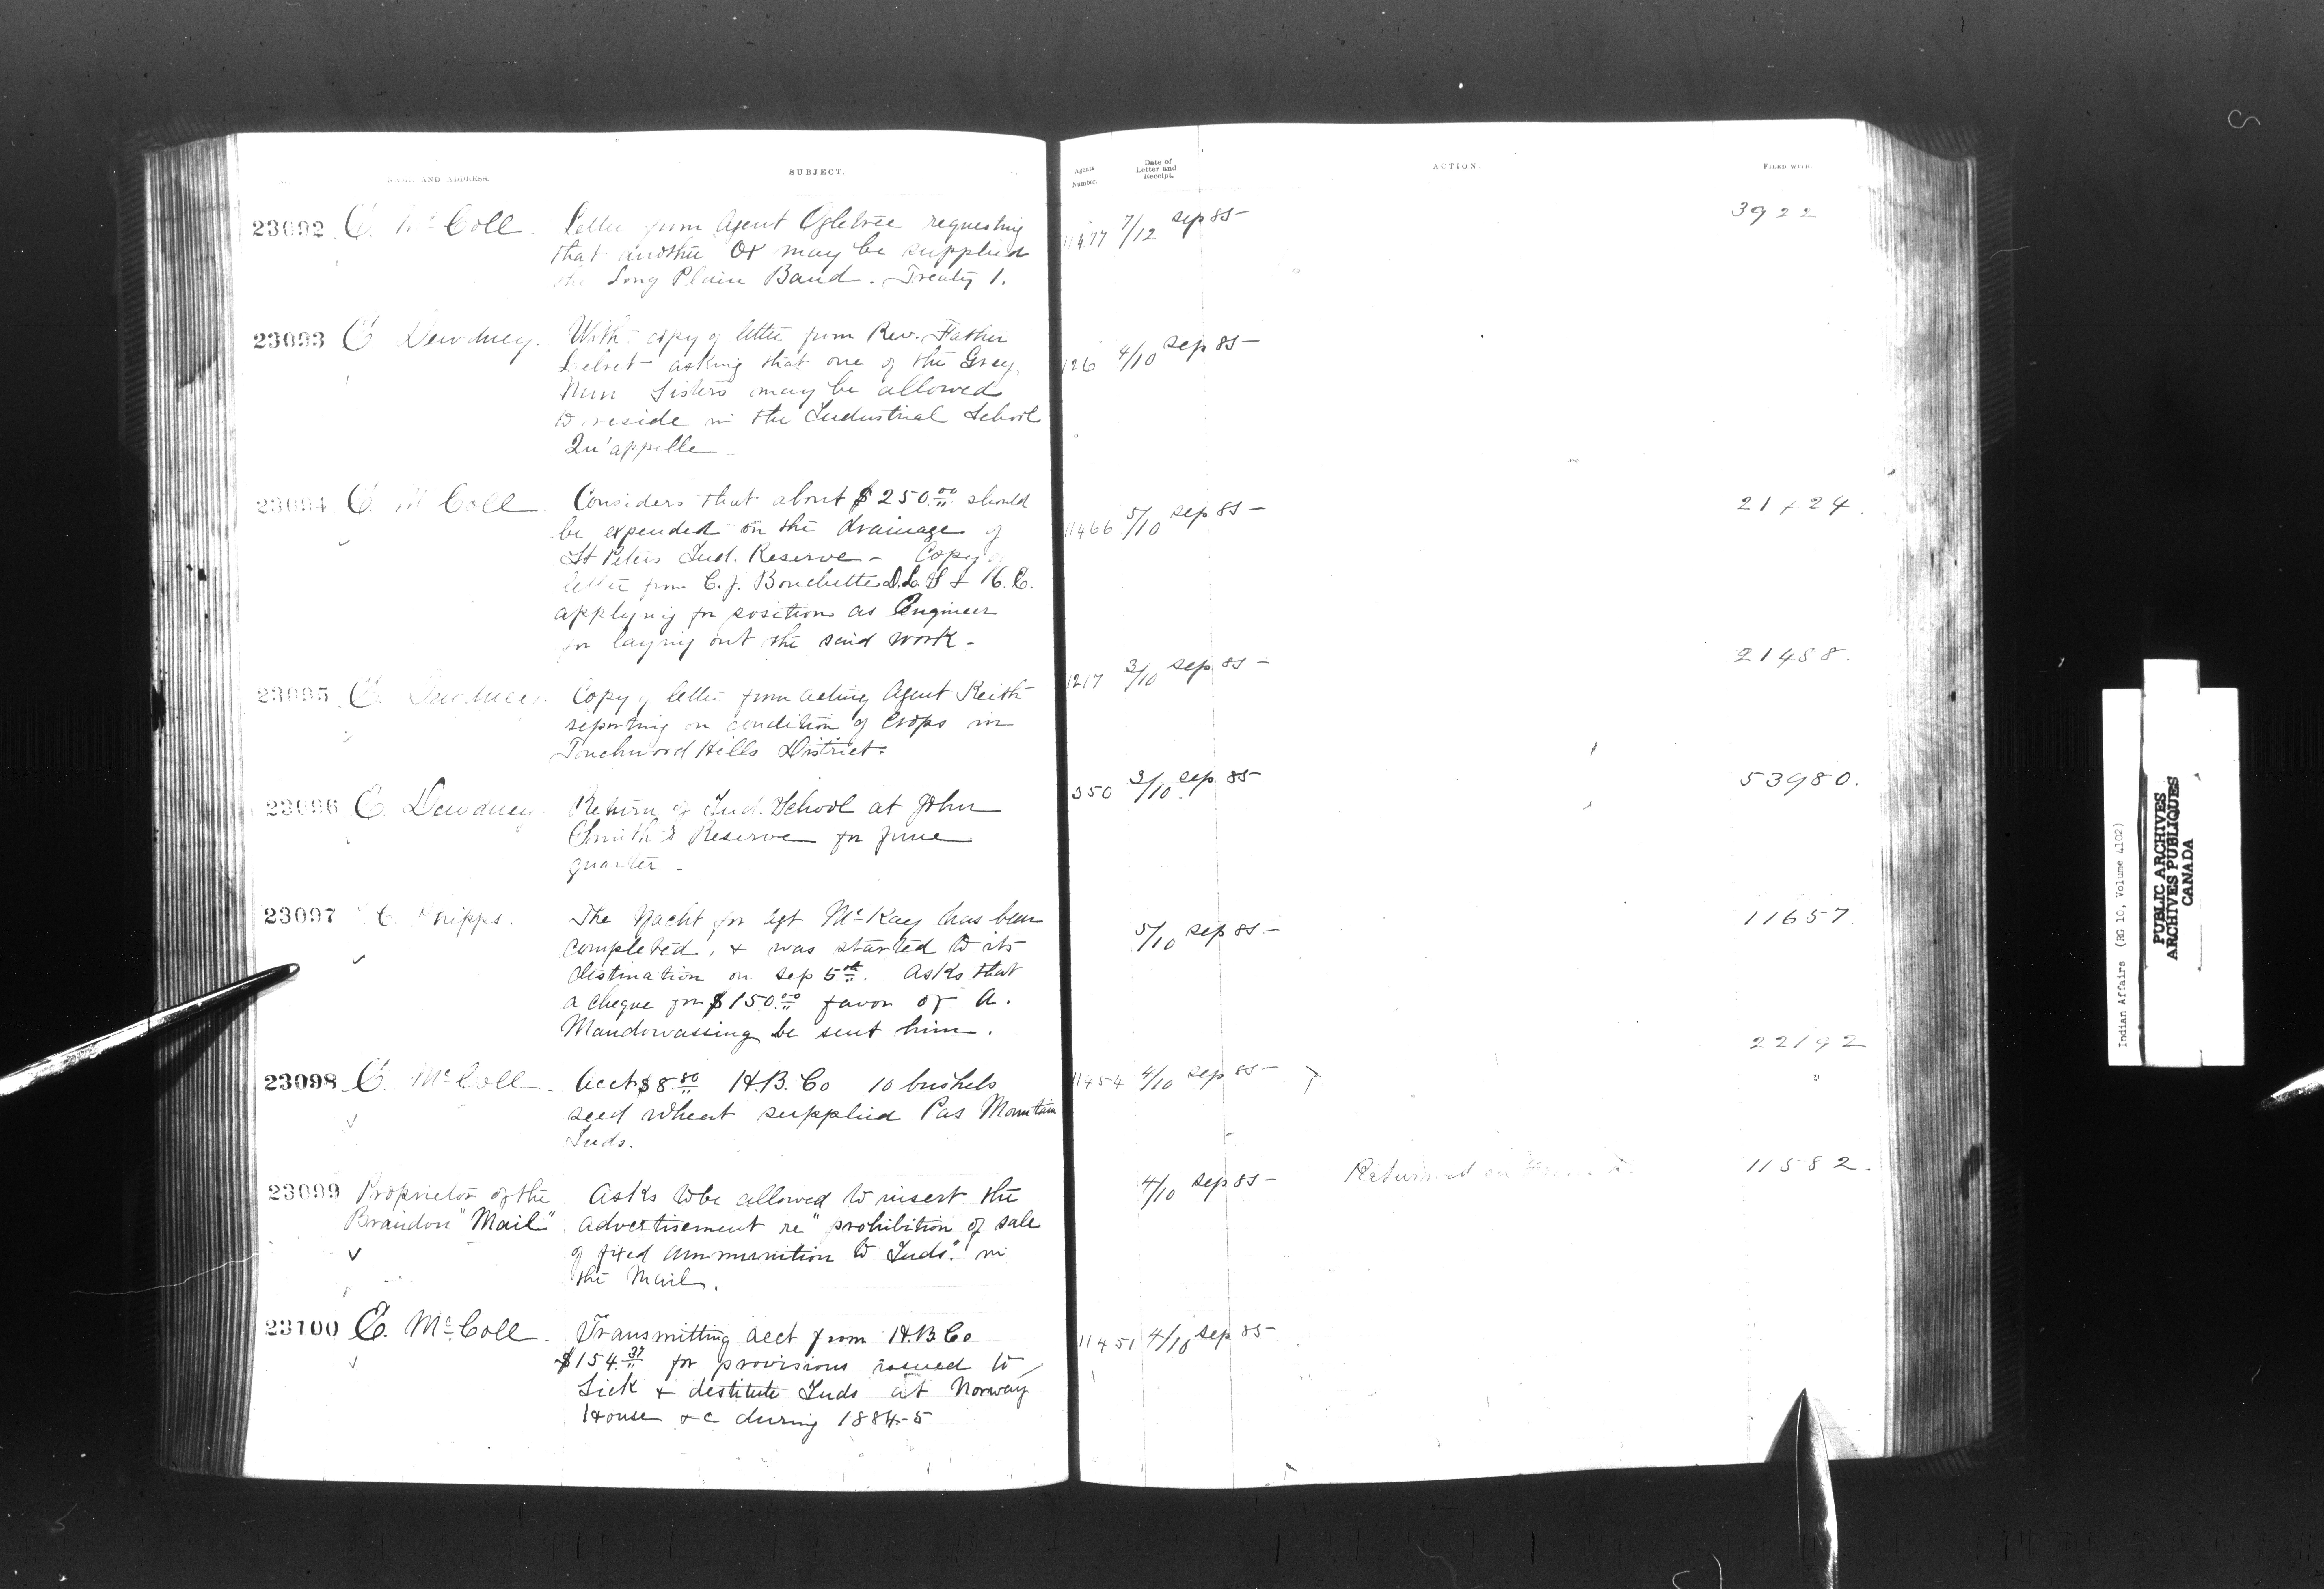 NAME AND ADDRESS.
SUBJECT.
Agents Number.
Date of Letter and Receipt.
ACTION.
FILED WITH
23092 E. McColl. Letter from Agent Ogletree requesting 11477 7/12 Sep 85 3922
that another Ox may be supplied
the Long Plain Band. Treaty 1.
23093 E. Dewdney. With copy of letter from Rev. Father 126 4/10 Sep 85
Lebret asking that one of the Grey
Nun Sisters may be allowed
to reside in the Industrial School
Qu'appelle
23094 E. McColl. Considers that about $250.00 should 11466 5/10 Sep 85 21124
be expended on the drainage of
St Peters Ind. Reserve - Copy of
letter from C. J. Bouchette D.L.S &
applying for position as Engineer
for laying out the said work -
23095 E. Dewdney. Copy of letter from acting Agent Keith 1217 3/10 Sep. 85 21458.
reporting on condition of Crops in
Touchwood Hills District.
23096 E. Dewdney Return of Ind. School at John 350 3/10 Sep 85 53980.
Smith's Reserve for June
quarter.
23097 C. Phipps. The Yacht for Agt McKay has been 5/10 Sep 85 11657
completed, & was started to its
destination on Sep 5th. Asks that
a cheque for $150.00 favor of A.
Mandowassing be sent him.
23098 E. McColl. Acct $8.80 H.B. Co 10 bushels 11454 4/10 Sep 85 22192
seed wheat supplied Pas Mountain
Inds.
23099 Proprietor of the Asks to be allowed to insert the 4/10 Sep 85 Returned on 11582.
Brandon "Mail" advertisement re "prohibition of sale
of fixed ammunition to Inds." in
the Mail.
23100 E. McColl. Transmitting acct from H.B Co 11451 4/10 Sep 85
$154.37 for provisions issued to
Sick & destitute Inds at Norway
House &c during 1884-5
Indian Affairs (RG 10, Volume 4102)
PUBLIC ARCHIVES
ARCHIVES PUBLIQUES
CANADA